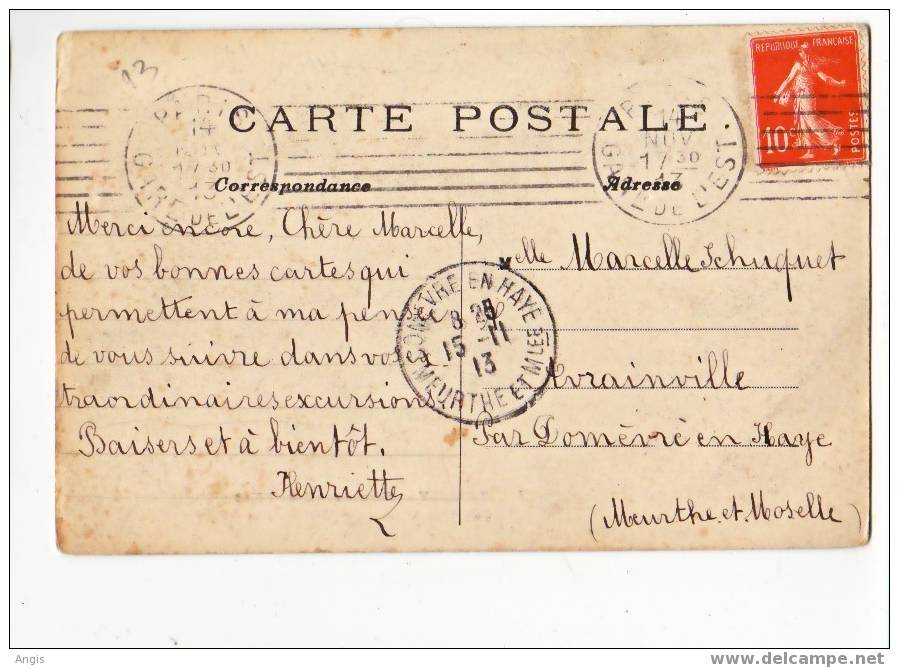 13
CARTE POSTALE.
PARIS
14
NOV
17 30
13
GARE DE L'EST
PARIS
14
NOV
17 30
13
GARE DE L'EST
REPUBLIQUE FRANÇAISE
10c
POSTES
Correspondance
Adresse
Merci encore, Chère Marcelle,
de vos bonnes cartes qui
permettent à ma pensée
de vous suivre dans vos ex
traordinaires excursions
Baisers et à bientôt.
Henriette
elle Marcelle Schuquet
Avrainville
Par Domèvre en Haye
(Meurthe.et.Moselle)
DOMÈVRE EN HAYE
8 25
15 -11
13
MEURTHE ET MLLE
Angis
www.delcampe.net